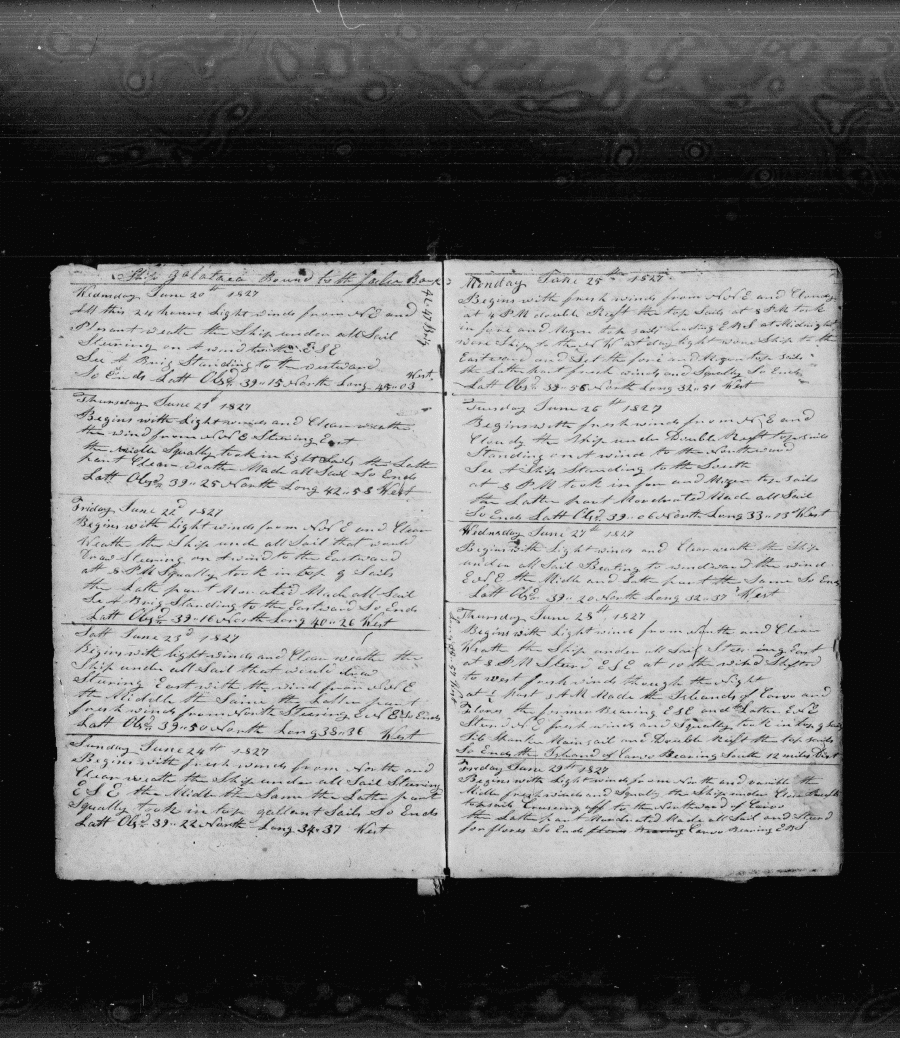 Ship Galataea Bound to the Bank
Wednsday June 20th 1827
All this 24 hours Light winds from NE and
Plesant weath the Ship under all Sail
Steering on A wind to the ESE
See A Brig Standing to the westward
So Ends Latt Obsd 39 " 15 North Long 45 " 03 West
Thursday June 21st 1827
Begins with Light winds and Clear weath
the wind from NNE Steering East
the Middle Squally took in light Sails the Latter
part Clear weath Made all Sail So Ends
Latt Obsd 39 " 25 North Long 42 " 58 West
Friday June 22d 1827
Begins with Light winds from NNE and Clear
Weath the Ship under all Sail that would
Draw Steering on A wind to the Eastward
att 8 PM Squally took in top g Sails
the Latter part Moderated Made all Sail
See A Brig Standing to the Eastward So Ends
Latt Obsd 39 " 16 North Long 40 " 26 West
Satt June 23d 1827
Begins with light winds and Clear weath the
Ship under all Sail that would draw
Steering East with the wind from NNE
the Middle the Same the Latter part
fresh winds from North Steering ENE So Ends
Latt Obsd 39 " 50 North Long 38 " 36 West
Sunday June 24th 1827
Begins with fresh winds from North and
Clear weath the Ship under all Sail Steering
ESE the Middle the Same the Latter part
Squally took in top gallant Sails So Ends
Latt Obsd 39 " 22 North Long 34 " 37 West
Monday June 25th 1827
Begins with fresh winds from NNE and Cloudy
at 4 PM double Reeft the top Sails at 8 PM took
in fore and Mizen top sails heading EBS at Midnight
wore Ship to the NW at day light wore Ship to the
Eastward and Set the fore and Mizen top sails
the Latter part fresh winds and Squally So Ends
Latt Obsd 39 " 56 North Long 32 " 51 West
Tuesday June 26th 1827
Begins with fresh winds from NE and
Cloudy the Ship under Double Reeft top sails
Standing on A wind to the Northward
See A Ship Standing to the South
at 8 PM took in fore and Mizen top sails
the Latter part Moderated Made all Sail
So Ends Latt Obsd 39 " 06 North Long 33 " 13 West
Wednsday June 27th 1827
Begins with Light winds and Clear weath the Ship
under all Sail Beating to windward the wind
ENE the Middle and Latter part the Same So Ends
Latt Obsd 39 " 20 North Long 32 " 37 West
Thursday June 28th 1827
Begins with Light wind from North and Clear
Weath the Ship under all Sail Steering East
at 8 PM Steerd ESE at 10 the wind Shifted
to west fresh winds through the Night
at 1/2 past 3 AM Made the Islands of Corvo and
Flores the former Bearing ESE and Latter
Steerd NE fresh winds and Squally took in top g Sails
Jib Spanker Mainsail and Double Reeft the top sails
So Ends the Island of Corvo Bearing South 12 miles Dist
Friday June 29th 1827
Begins with Light winds from North and varible the
Middle fresh winds and Squally the Ship under Close Reeft
topsails Cruising off to the Northward of Corvo
the Latter part Moderated Made all Sail and Steerd
for flores So Ends Corvo Bearing EBS